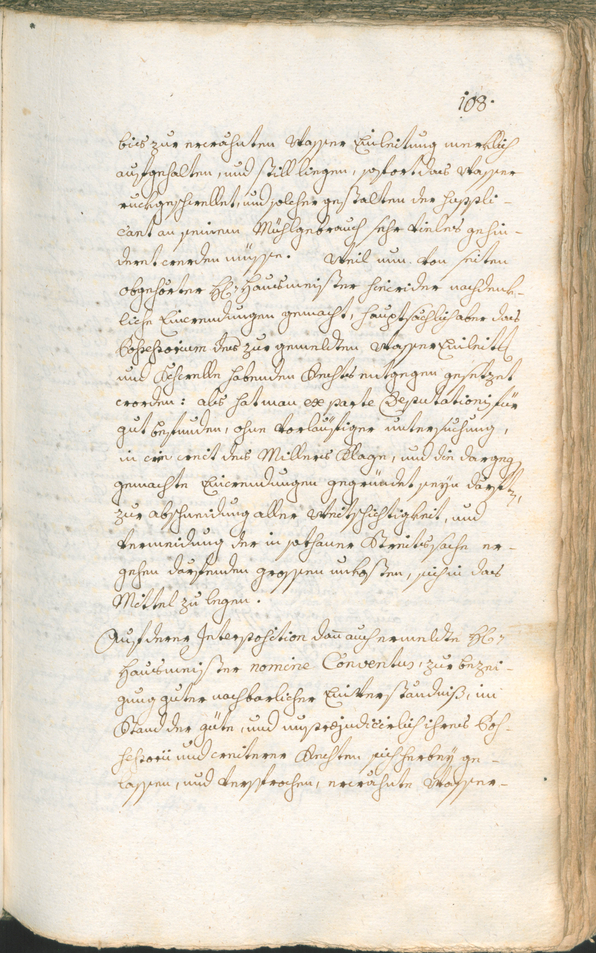 108.
bis zur erwähnten Wasser Einleitung merklich
aufgehalten, und still liegen, sofort das Wasser
ruckgeschwellet, und solcher gestalten der Suppli-
cant an seinem Mühlgebrauch sehr vieles gehin-
deret werden müsse. Weil nun von seiten
obgehörter HH: Hausmeister hinwider nachdenk-
liche Einwendungen gemacht, hauptsächlich aber das
Possessorium des zur gemeldten Wasser Einleit
und Schwelle habenden Rechts entgegen gesetzet
worden: als hat man ex parte Deputationis für
gut befunden, ohne vorläuffiger untersuchung,
in wie weit des Müllers Klage, und die dargeg
gemachte Einwendungen gegründet seyn dörfte,
zur abschneidung aller Weitschichtigkeit, und
Vermeidung der in sothaner Streitssache er-
gehen dörffenden grossen unkosten, sich in das
Mittel zu legen.
Auf derer Interposition dan auch ermeldte HH:
Hausmeister nomine Conventus, zur bezei-
gung guter nachbarlicher Einverständniß, im
Stand der güte, und unpræjudicirlich ihres Pos-
sessorii und weiterer Rechten sich herbey ge-
lassen, und versprochen, erwähnte Wasser-